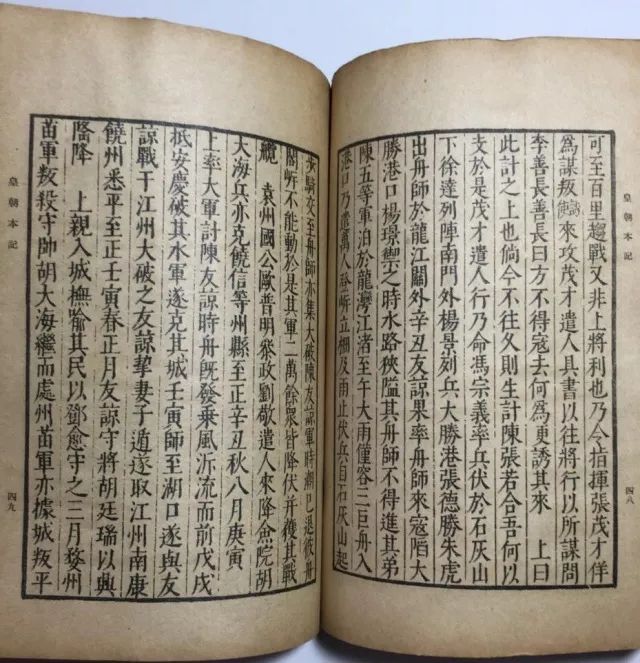 皇朝本記
四八
可至百里趨戰又非上將利也乃令指揮張茂才佯
爲謀叛 來攻茂才遣人具書以往將行以所謀問
李善長善長曰方不得寇去何爲更誘其來 上曰
此計之上也倘今不往久則生計陳張若合吾何以
支於是茂才遣人行乃命馮宗義率兵伏於石灰山
下徐達列陣南門外楊景列兵大勝港張德勝朱虎
出舟師於龍江關外辛丑友諒果率舟師來寇陷大
勝港口楊景禦之時水路狹隘其舟師不得進其弟
陳五等軍泊於龍灣江渚至午大雨僅容三巨舟入
港口乃遣萬人登岸立柵及雨止伏兵自石灰山起
步騎交至舟師亦集大破陳友諒軍時潮已退彼舟
閣岍不能動於是其軍二萬餘衆皆降伏并獲其戰
艦 袁州國公歐普明叅政劉敬遣人來降僉院胡
大海兵亦克饒信等州縣至正辛丑秋八月庚寅
上率大軍討陳友諒時舟旣發乗風泝流而前戊戌
抵安慶破其水軍遂克其城壬寅師至湖口遂與友
諒戰于江州大破之友諒挚妻子遁遂取江州南康
饒州悉平至正壬寅春正月友諒守將胡廷瑞以龍興
隆降 上親入城撫喻其民以鄧愈守之三月婺州
苗軍叛殺守帥胡大海繼而處州苗軍亦據城叛平
皇朝本記
四九